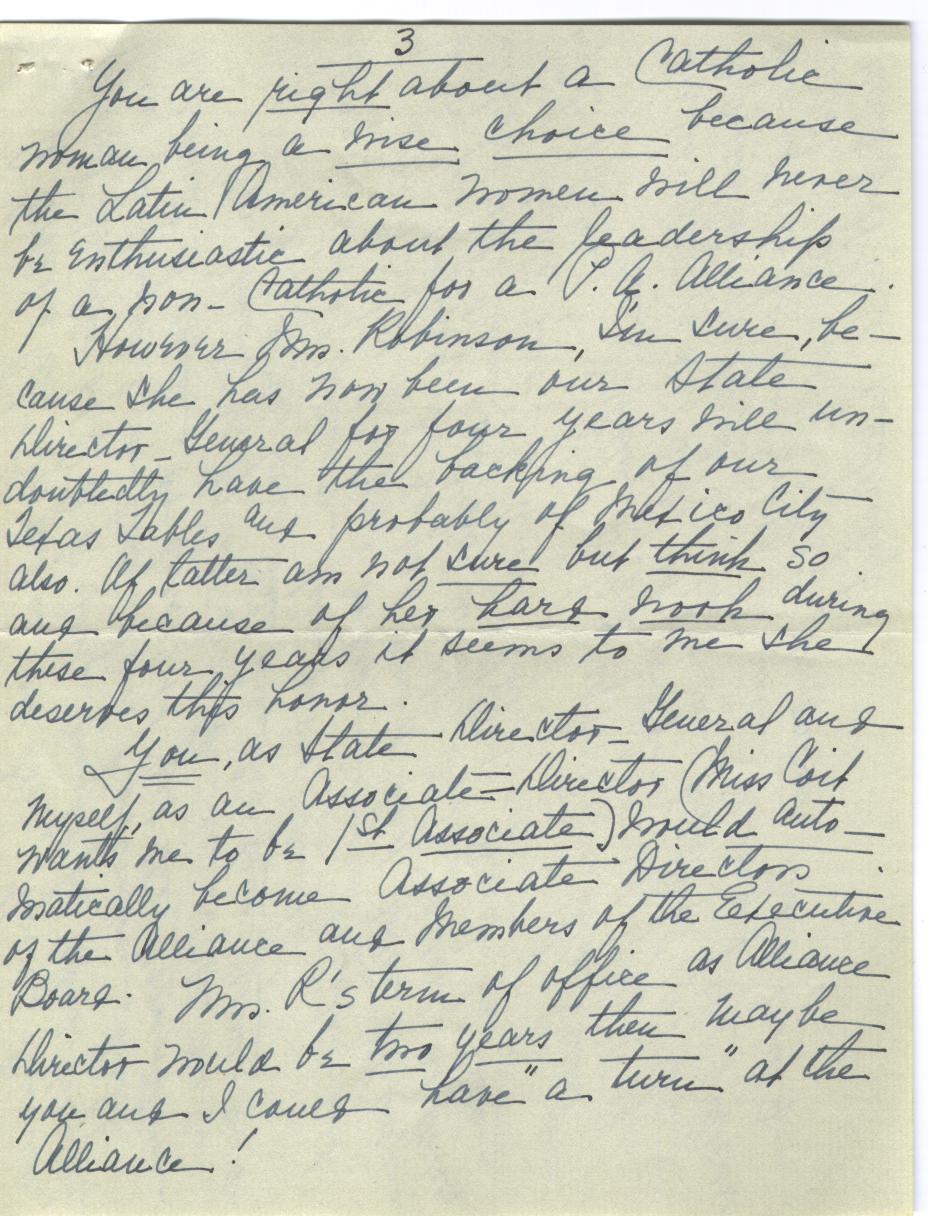 3
You are right about a Catholic
woman being a wise choice because
the Latin American women will never
be enthusiastic about the leadership
of a non-Catholic for a P. A. Alliance.
However Mrs. Robinson, I'm sure, be-
cause she has now been our State
Director-General for four years will un-
doubtedly have the backing of our
Texas Tables and probably of Mexico City
also. Of latter am not sure but think so
and because of her hard work during
these four years it seems to me she
deserves this honor.
You, as State Director-General and
myself, as an Associate-Director (Miss Coit
wants me to be 1st Associate) would auto-
matically become Associate Directors
of the Alliance and members of the Executive
Board. Mrs. R's term of office as Alliance
Director would be two years then maybe
you and I could have "a turn" at the
Alliance!